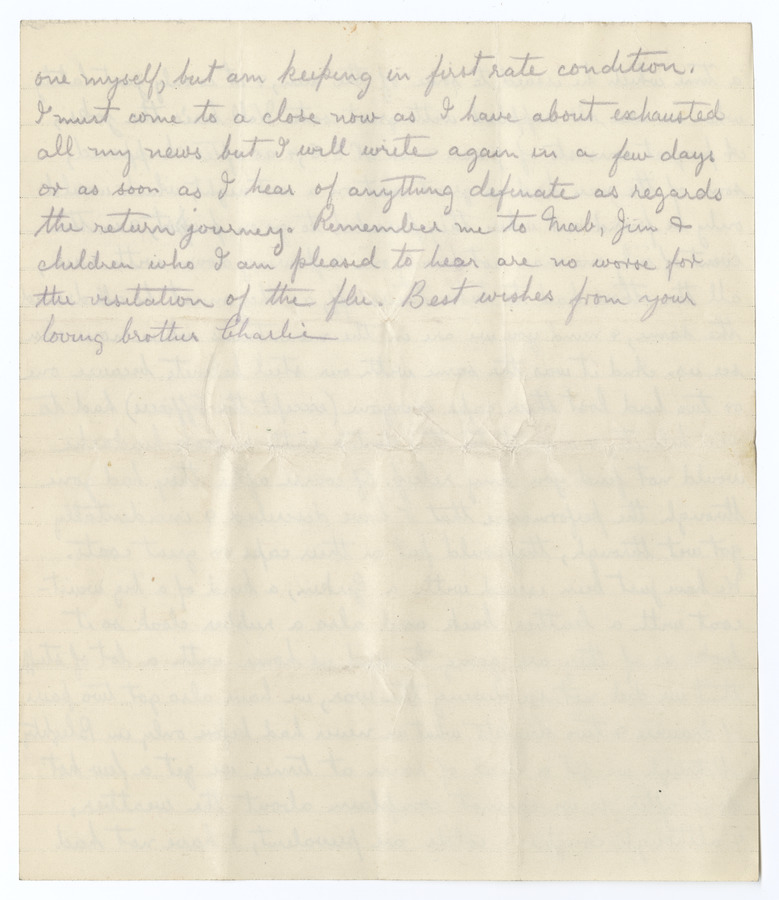 one myself, but am keeping in first rate condition.
I must come to a close now as I have about exhausted
all my news but I will write again in a few days
or as soon as I hear of anything definate as regards
the return journey. Remember me to Mab, Jim &
children who I am pleased to hear are no worse for
the visitation of the flu. Best wishes from your
loving brother Charlie